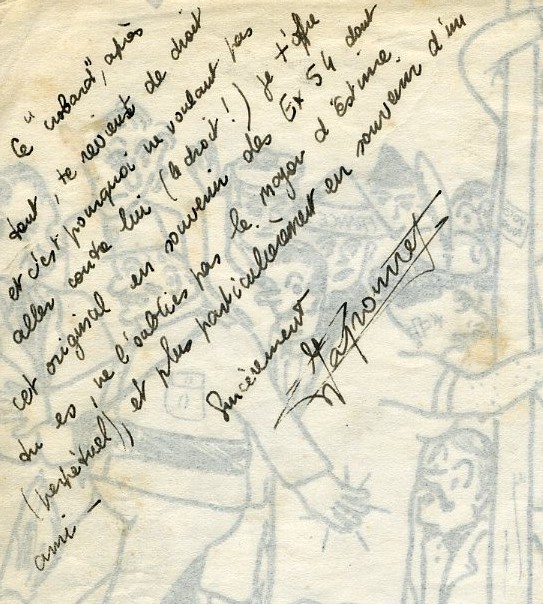 Ce "crobard", après
tout, te revient de droit
et c'est pourquoi ne voulant pas
aller contre lui (le droit!) je t'offre
cet original en souvenir des Ex 54 dont
tu es, ne l'oublies pas le moyon d'Estime
(perpétuel), et plus particulièrement en souvenir d'un
ami —
Sincèrement